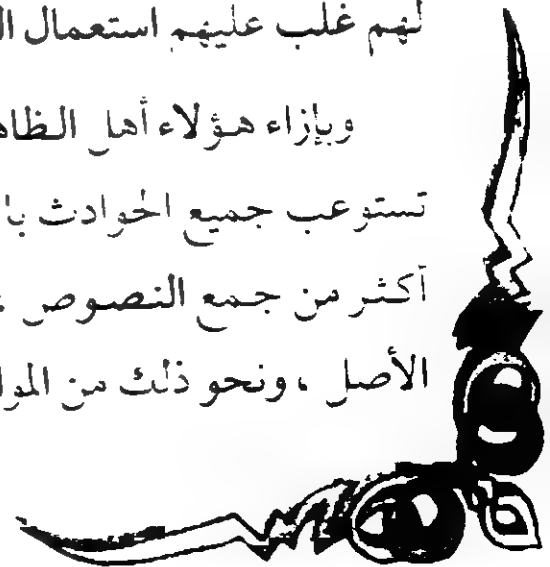 لهم غلب عليهم استعمال
وبإزاء هؤلاء أهل
تستوعب جميع الحوادث
أكثر من جمع النصوص
الأصل ، ونحو ذلك من